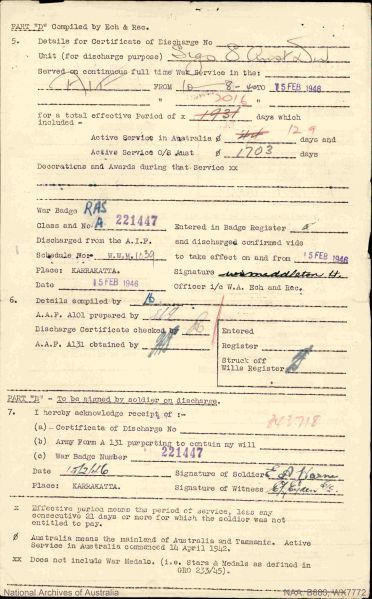 PART "D" Compiled by Ech & Rec.
5. Details for Certificate of Discharge No
Unit (for discharge purpose) Sigs 8 Aust Div
Served on continuous full time War Service in the:
AIF FROM 10-8-40 TO 15 FEB 1946
" " 2016
for a total effective Period of x 1931 days which
included -
Active Service in Australia ø 129 days and
Active Service O/S Aust 1703 days
Decorations and Awards during that Service xx
War Badge RAS
Class and No A 221447 Entered in Badge Register
Discharged from the A.I.F. and discharged confirmed vide
Schedule No:- W.M.M. 1430 to take effect on and from 15 FEB 1946
Place: KARRAKATTA. Signature
Date 15 FEB 1946 Officer i/c W.A. Ech and Rec.
6. Details compiled by
A.A.F. A101 prepared by
Discharge Certificate checked by Entered
A.A.F. A131 obtained by Register
Struck off
Wills Register
PART "E" - To be signed by soldier on discharge.
7. I hereby acknowledge receipt of :-
(a) Certificate of Discharge No
(b) Army Form A 131 purporting to contain my will
(c) War Badge Number 221447
Date 15/2/46 Signature of Soldier
PLACE: KARRAKATTA. Signature of Witness
x Effective period means the period of service, less any
consecutive 21 days or more for which the soldier was not
entitled to pay.
ø Australia means the mainland of Australia and Tasmania. Active
Service in Australia commenced 14 April 1942.
xx Does not include War Medals. (i.e. Stars & Medals as defined in
GRO 233/45).
National Archives of Australia NAA: B883, WX7772